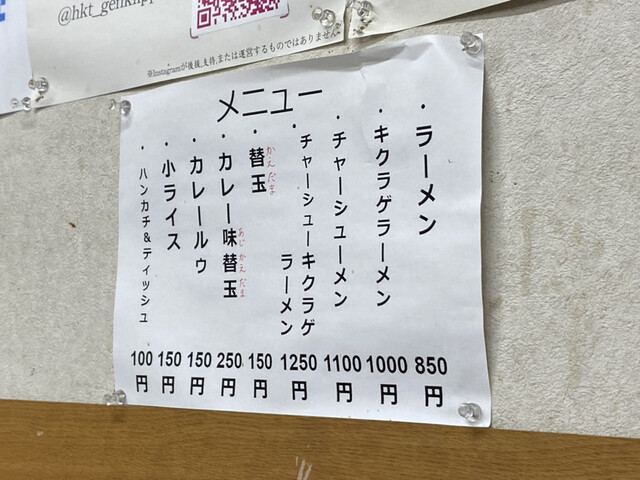 @hkt_genki
※Instagramが後援,支持,または運営するものではありません。
メニュー
・ラーメン 850円
・キクラゲラーメン 1000円
・チャーシューメン 1100円
・チャーシューキクラゲ
ラーメン 1250円
・替玉 150円
かえだま
・カレー味替玉 250円
あじかえだま
・カレールゥ 150円
・小ライス 150円
・ハンカチ&ティッシュ 100円